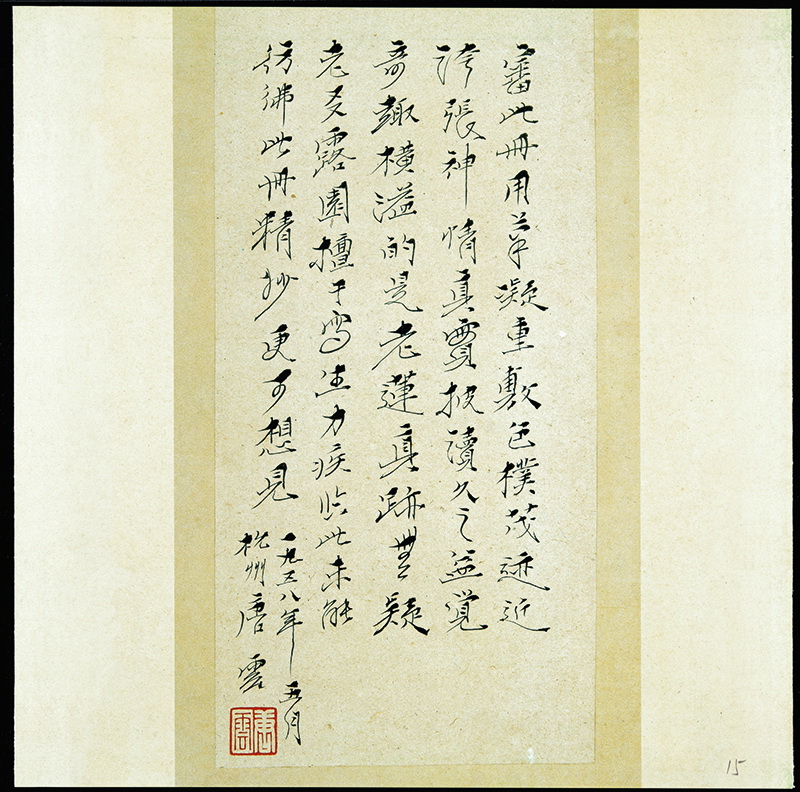 審此冊用筆凝重敷色樸茂迹近
誇張神情真實披讀久之益覺
奇趣橫溢的是老蓮真跡無疑
老友露園擅于寫生力疾臨此未能
彷彿此冊精妙更可想見
一九五八年五月
杭州唐雲
唐雲
15